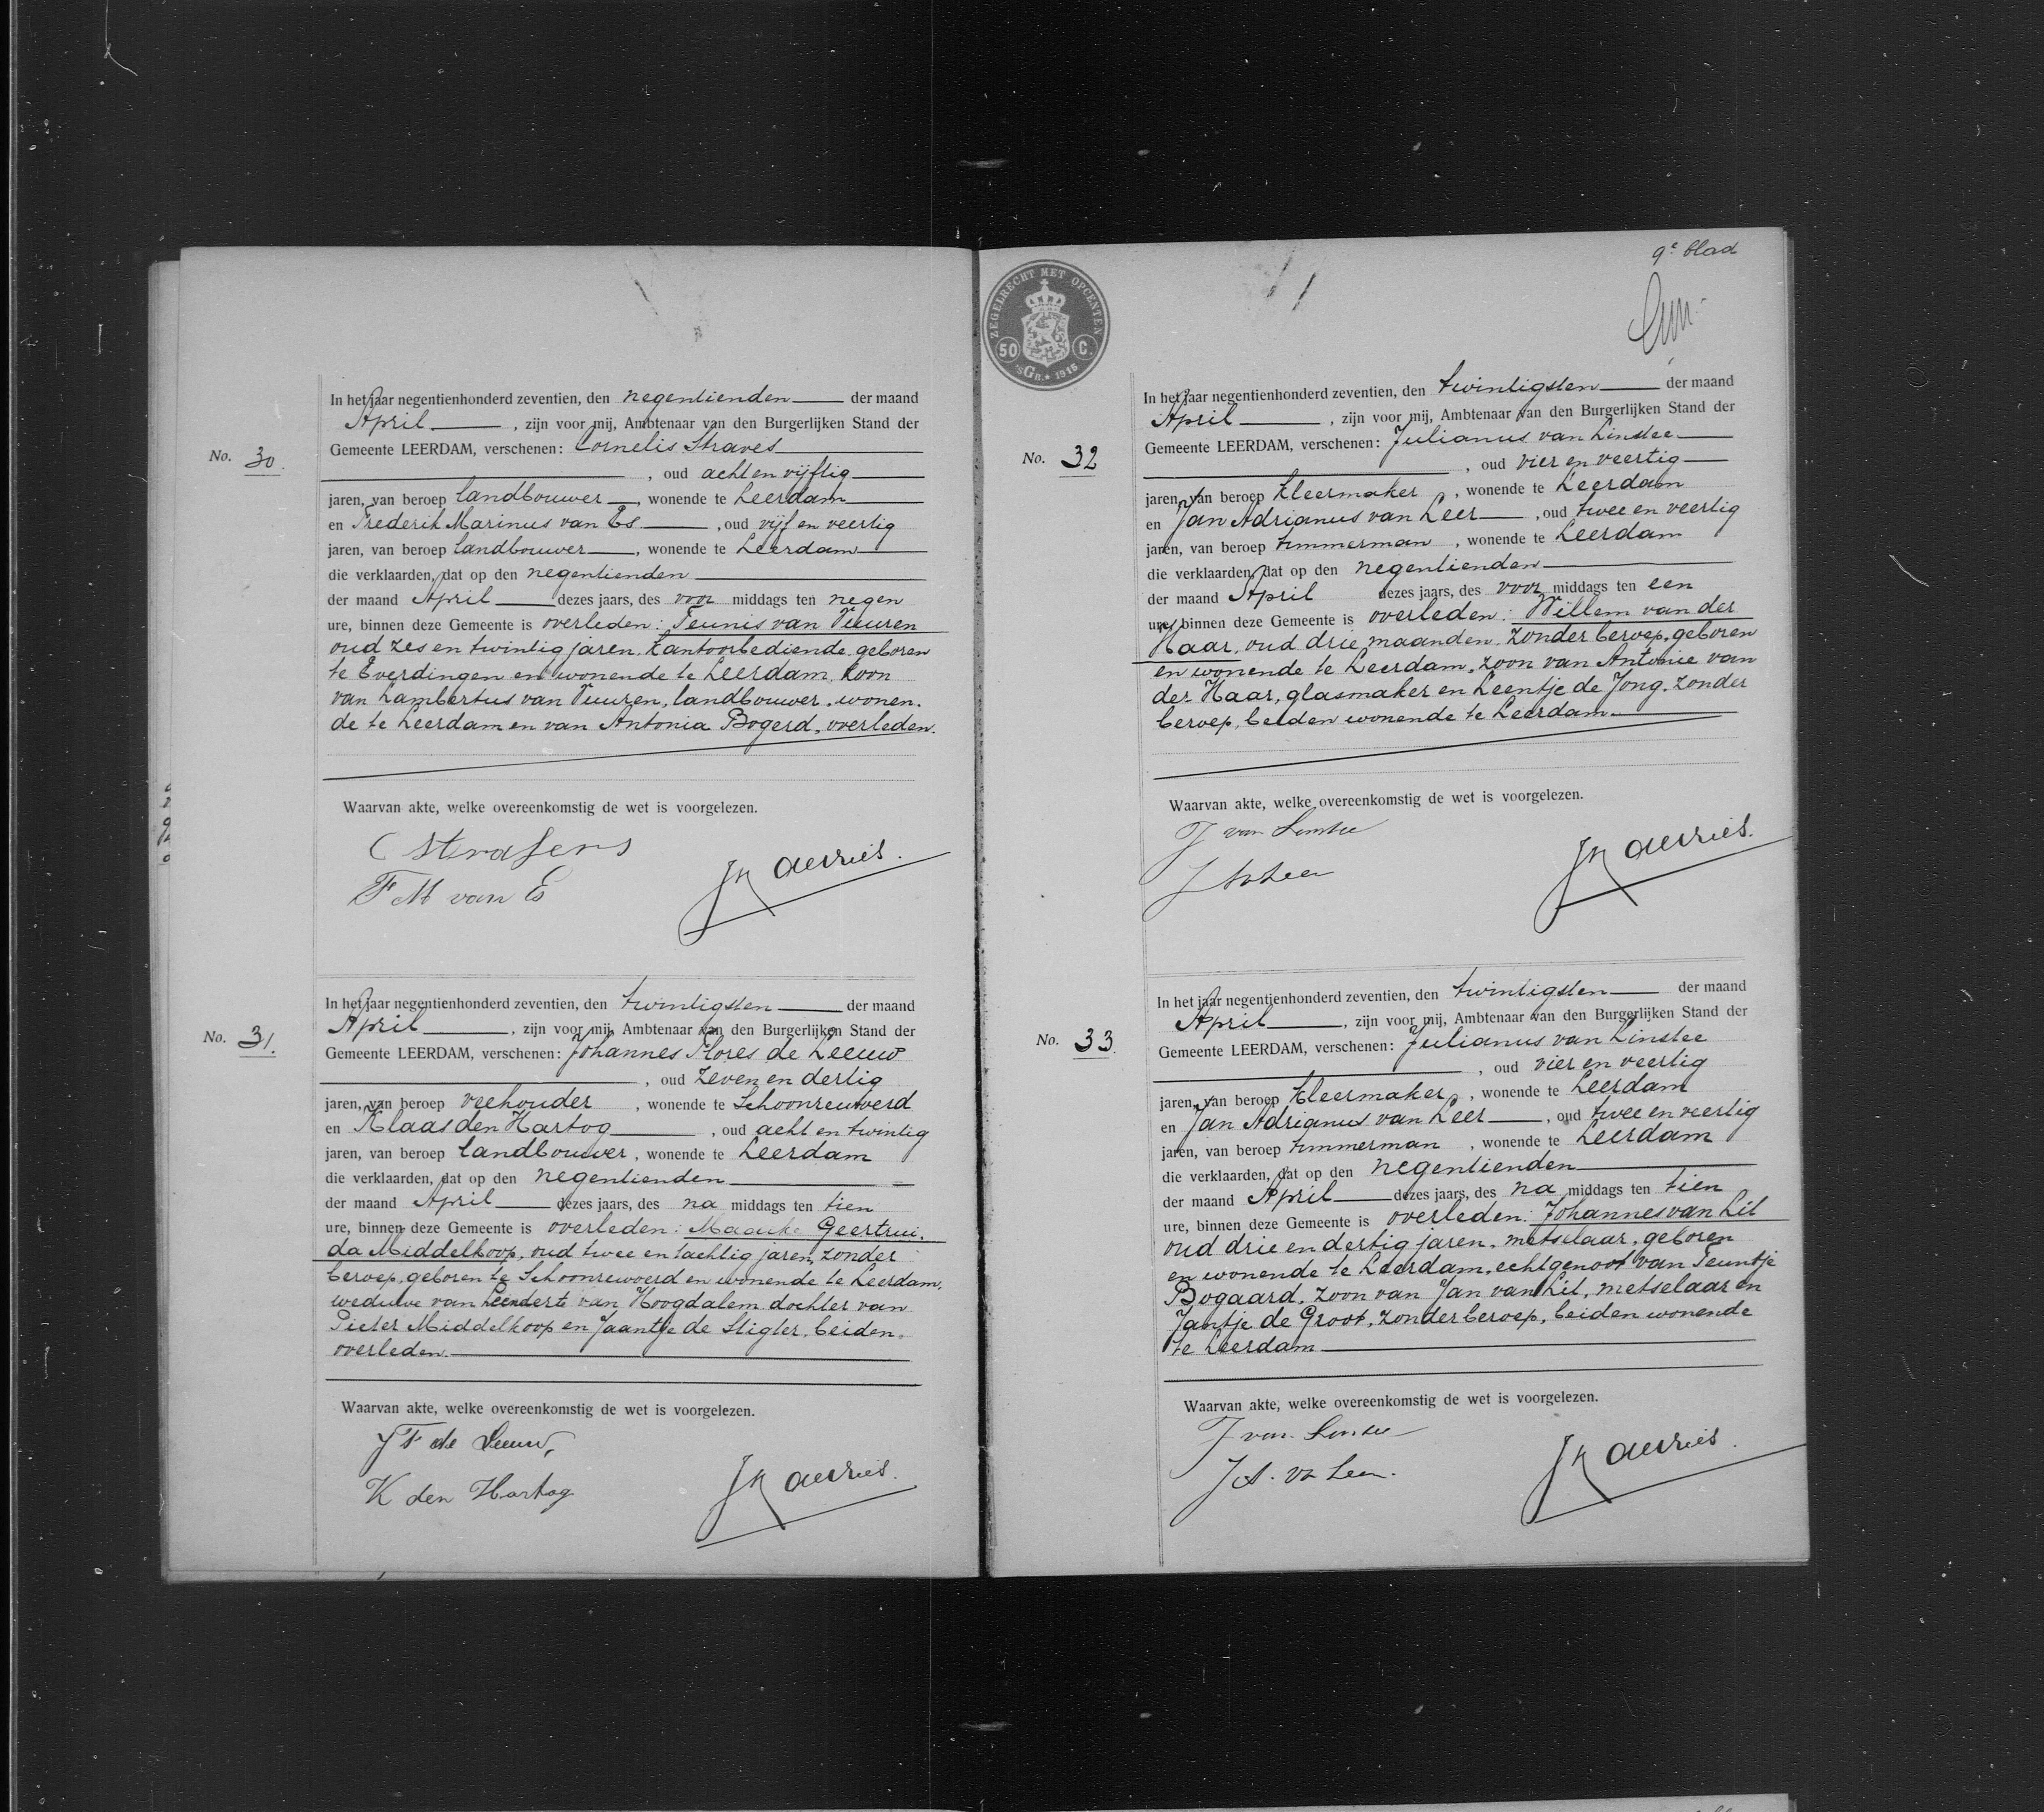 No. 30.
In het jaar negentienhonderd zeventien, den negentienden der maand
April, zijn voor mij, Ambtenaar van den Burgerlijken Stand der
Gemeente LEERDAM, verschenen: Cornelis Straves
, oud acht en vijftig
jaren, van beroep landbouwer, wonende te Leerdam
en Frederik Marinus van Es, oud vijf en veertig
jaren, van beroep landbouwer, wonende te Leerdam
die verklaarden, dat op den negentienden
der maand April dezes jaars, des voor middags ten negen
ure, binnen deze Gemeente is overleden: Teunis van Vuuren
oud zes en twintig jaren, kantoorbediende, geboren
te Everdingen en wonende te Leerdam, zoon
van Lambertus van Vuuren, landbouwer, wonen-
de te Leerdam en van Antonia Bogerd, overleden.
Waarvan akte, welke overeenkomstig de wet is voorgelezen.
F M van Es
No. 31.
In het jaar negentienhonderd zeventien, den twintigsten der maand
April, zijn voor mij, Ambtenaar van den Burgerlijken Stand der
Gemeente LEERDAM, verschenen: Johannes Flores de Leeuw
, oud zeven en dertig
jaren, van beroep veehouder, wonende te Schoonrewoerd
en Klaas den Hartog, oud acht en twintig
jaren, van beroep landbouwer, wonende te Leerdam
die verklaarden, dat op den negentienden
der maand April dezes jaars, des na middags ten tien
ure, binnen deze Gemeente is overleden: Geertrui-
da Middelkoop, oud twee en tachtig jaren, zonder
beroep, geboren te Schoonrewoerd en wonende te Leerdam,
weduwe van Leendert van Hoogdalem, dochter van
Pieter Middelkoop en Jaantje de Stigter, beiden
overleden.
Waarvan akte, welke overeenkomstig de wet is voorgelezen.
J F de Leeuw,
K den Hartog
9e blad
ZEGELRECHT MET OPCENTEN
50 C.
'sGR. * 1915
No. 32
In het jaar negentienhonderd zeventien, den twintigsten der maand
April, zijn voor mij, Ambtenaar van den Burgerlijken Stand der
Gemeente LEERDAM, verschenen: Julianus van Linstee
, oud vier en veertig
jaren, van beroep kleermaker, wonende te Leerdam
en Jan Adrianus van Leer, oud twee en veertig
jaren, van beroep timmerman, wonende te Leerdam
die verklaarden, dat op den negentienden
der maand April dezes jaars, des voor middags ten een
ure, binnen deze Gemeente is overleden: Willem van der
Haar, oud drie maanden, zonder beroep, geboren
en wonende te Leerdam, zoon van Antonie van
der Haar, glasmaker en Leentje de Jong, zonder
beroep, beiden wonende te Leerdam
Waarvan akte, welke overeenkomstig de wet is voorgelezen.
J van Linstee
No. 33
In het jaar negentienhonderd zeventien, den twintigsten der maand
April, zijn voor mij, Ambtenaar van den Burgerlijken Stand der
Gemeente LEERDAM, verschenen: Julianus van Linstee
, oud vier en veertig
jaren, van beroep kleermaker, wonende te Leerdam
en Jan Adrianus van Leer, oud twee en veertig
jaren, van beroep timmerman, wonende te Leerdam
die verklaarden, dat op den negentienden
der maand April dezes jaars, des na middags ten tien
ure, binnen deze Gemeente is overleden: Johannes van Lit
oud drie en dertig jaren, metselaar, geboren
en wonende te Leerdam, echtgenoot van Teuntje
Bogaard, zoon van Jan van Lit, metselaar en
Jantje de Groot, zonder beroep, beiden wonende
te Leerdam
Waarvan akte, welke overeenkomstig de wet is voorgelezen.
J van Linstee
J A. v Leer.